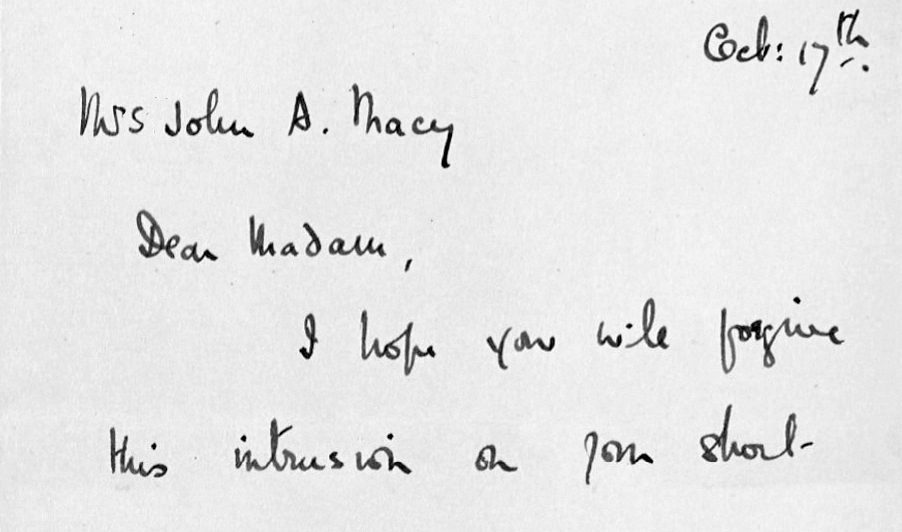 Oct: 17th.
Mrs John A. Macy
Dear Madam,
I hope you will forgive
this intrusion on your short